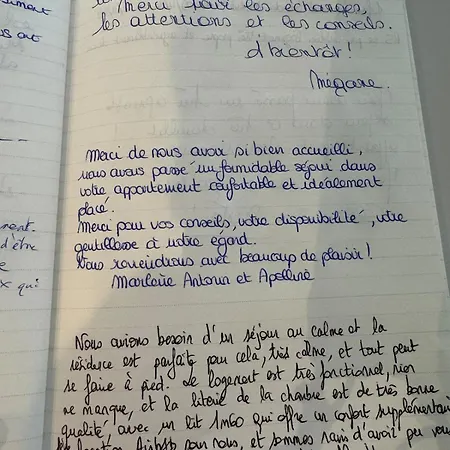 ument
us ont
Merci pour les échanges,
les attentions et les conseils.
à bientôt !
Mégane.
Merci de nous avoir si bien accueilli,
nous avons passé un formidable séjour dans
votre appartement confortable et idéalement
placé.
Merci pour vos conseils, votre disponibilité, votre
gentillesse à notre égard.
Nous reviendrons avec beaucoup de plaisir !
Antonin et Apolline
ment.
d'être
e
x qui
Nous avions besoin d'un séjour au calme et la
résidence est parfaite pour cela, très calme, et tout peut
se faire à pied. Le logement est très fonctionnel, rien
ne manque, et la literie de la chambre est de très bonne
qualité avec un lit 1m60 qui offre un confort supplémentair
location Airbnb pour nous, et sommes ravis d'avoir pu vous